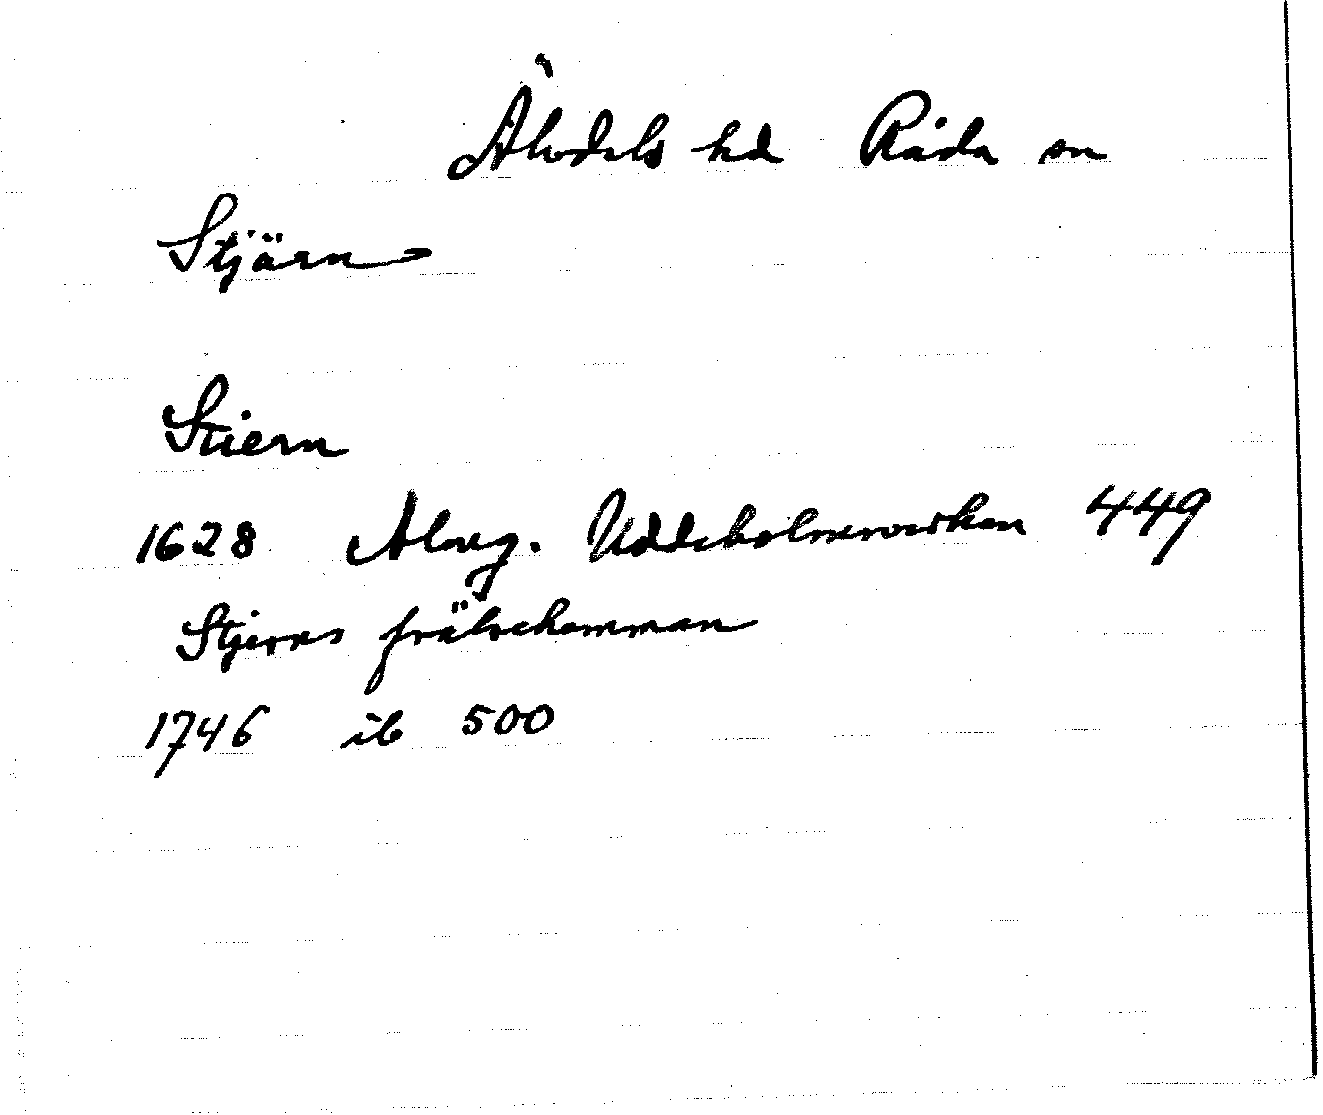 Älvdals hd Råda sn
Stjärn
Stiern
1628 Almqg. Uddeholmsverken 449
Stjerns frälsehamman
1746 ib 500